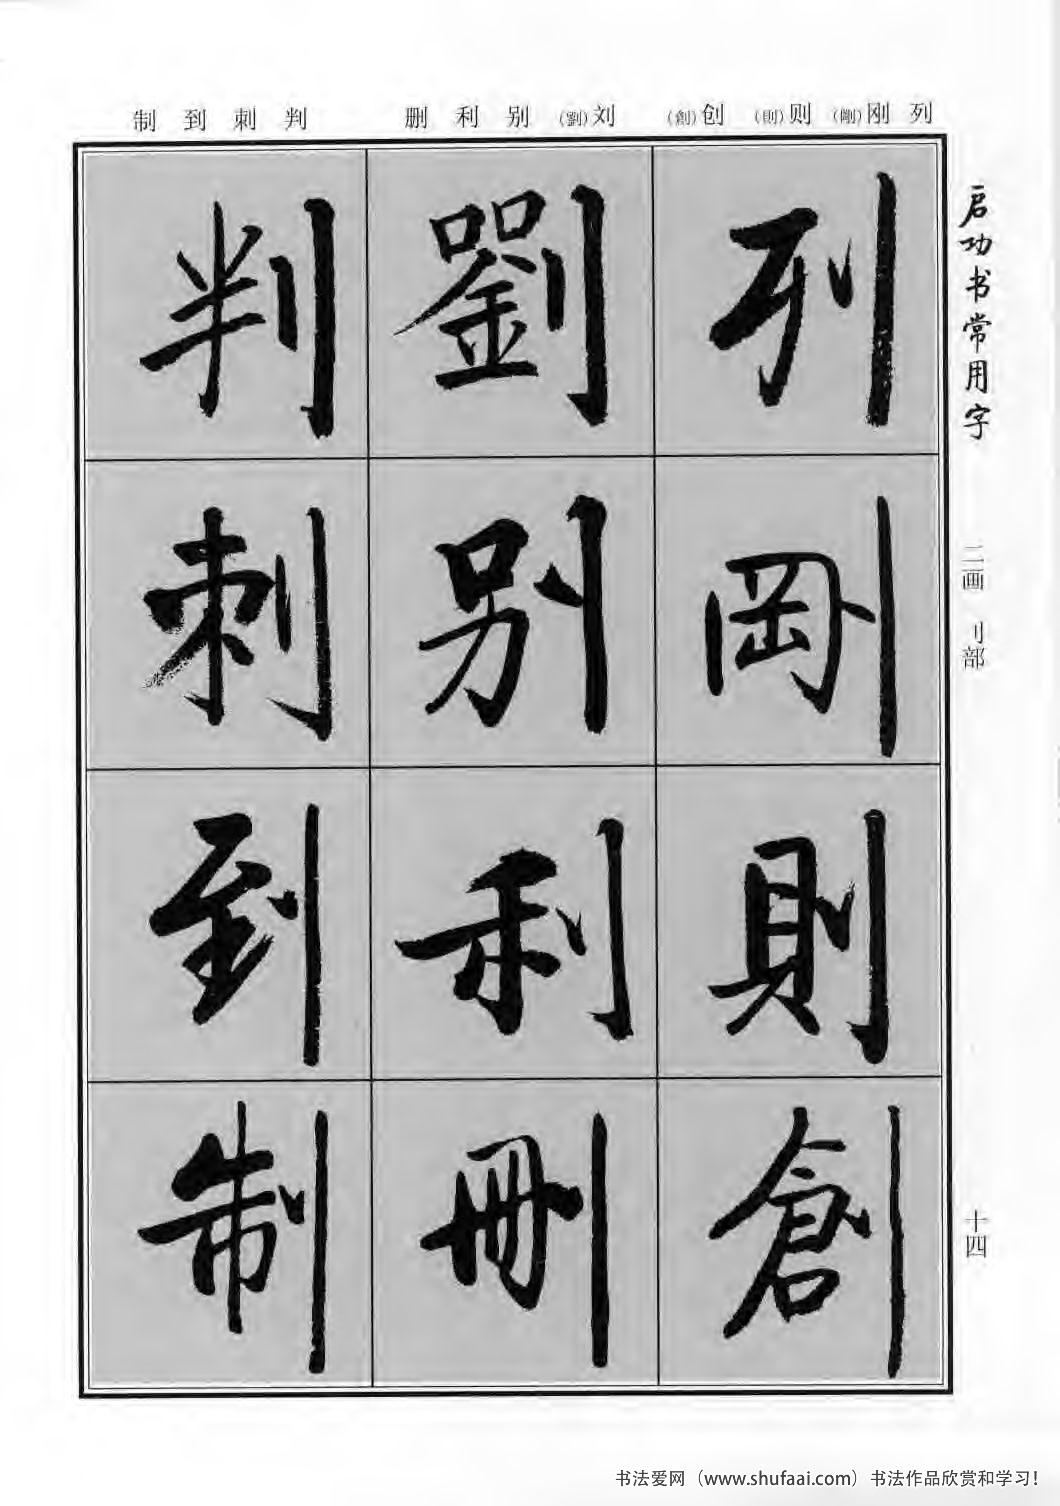 列 刚(剛) 则(則) 创(創)
刘(劉) 别 利 删
判 刺 到 制
启功书常用字
二画 刂部
十四
列
剛
則
創
劉
别
利
删
判
刺
到
制
书法爱网（www.shufaai.com）书法作品欣赏和学习！